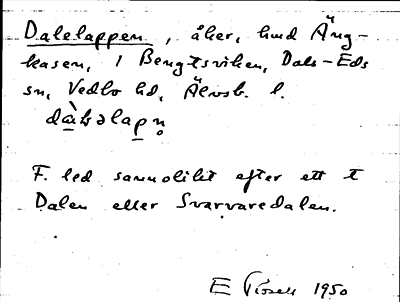 Dalelappen, åker, hmd Äng-
kasen, i Bengtsviken, Dals-Eds
sn, Vedbo hd, Älvsb. l.
dàbəlapn̥
F. led sannolikt efter ett t
Dalen eller Svarvaredalen.
E 1950